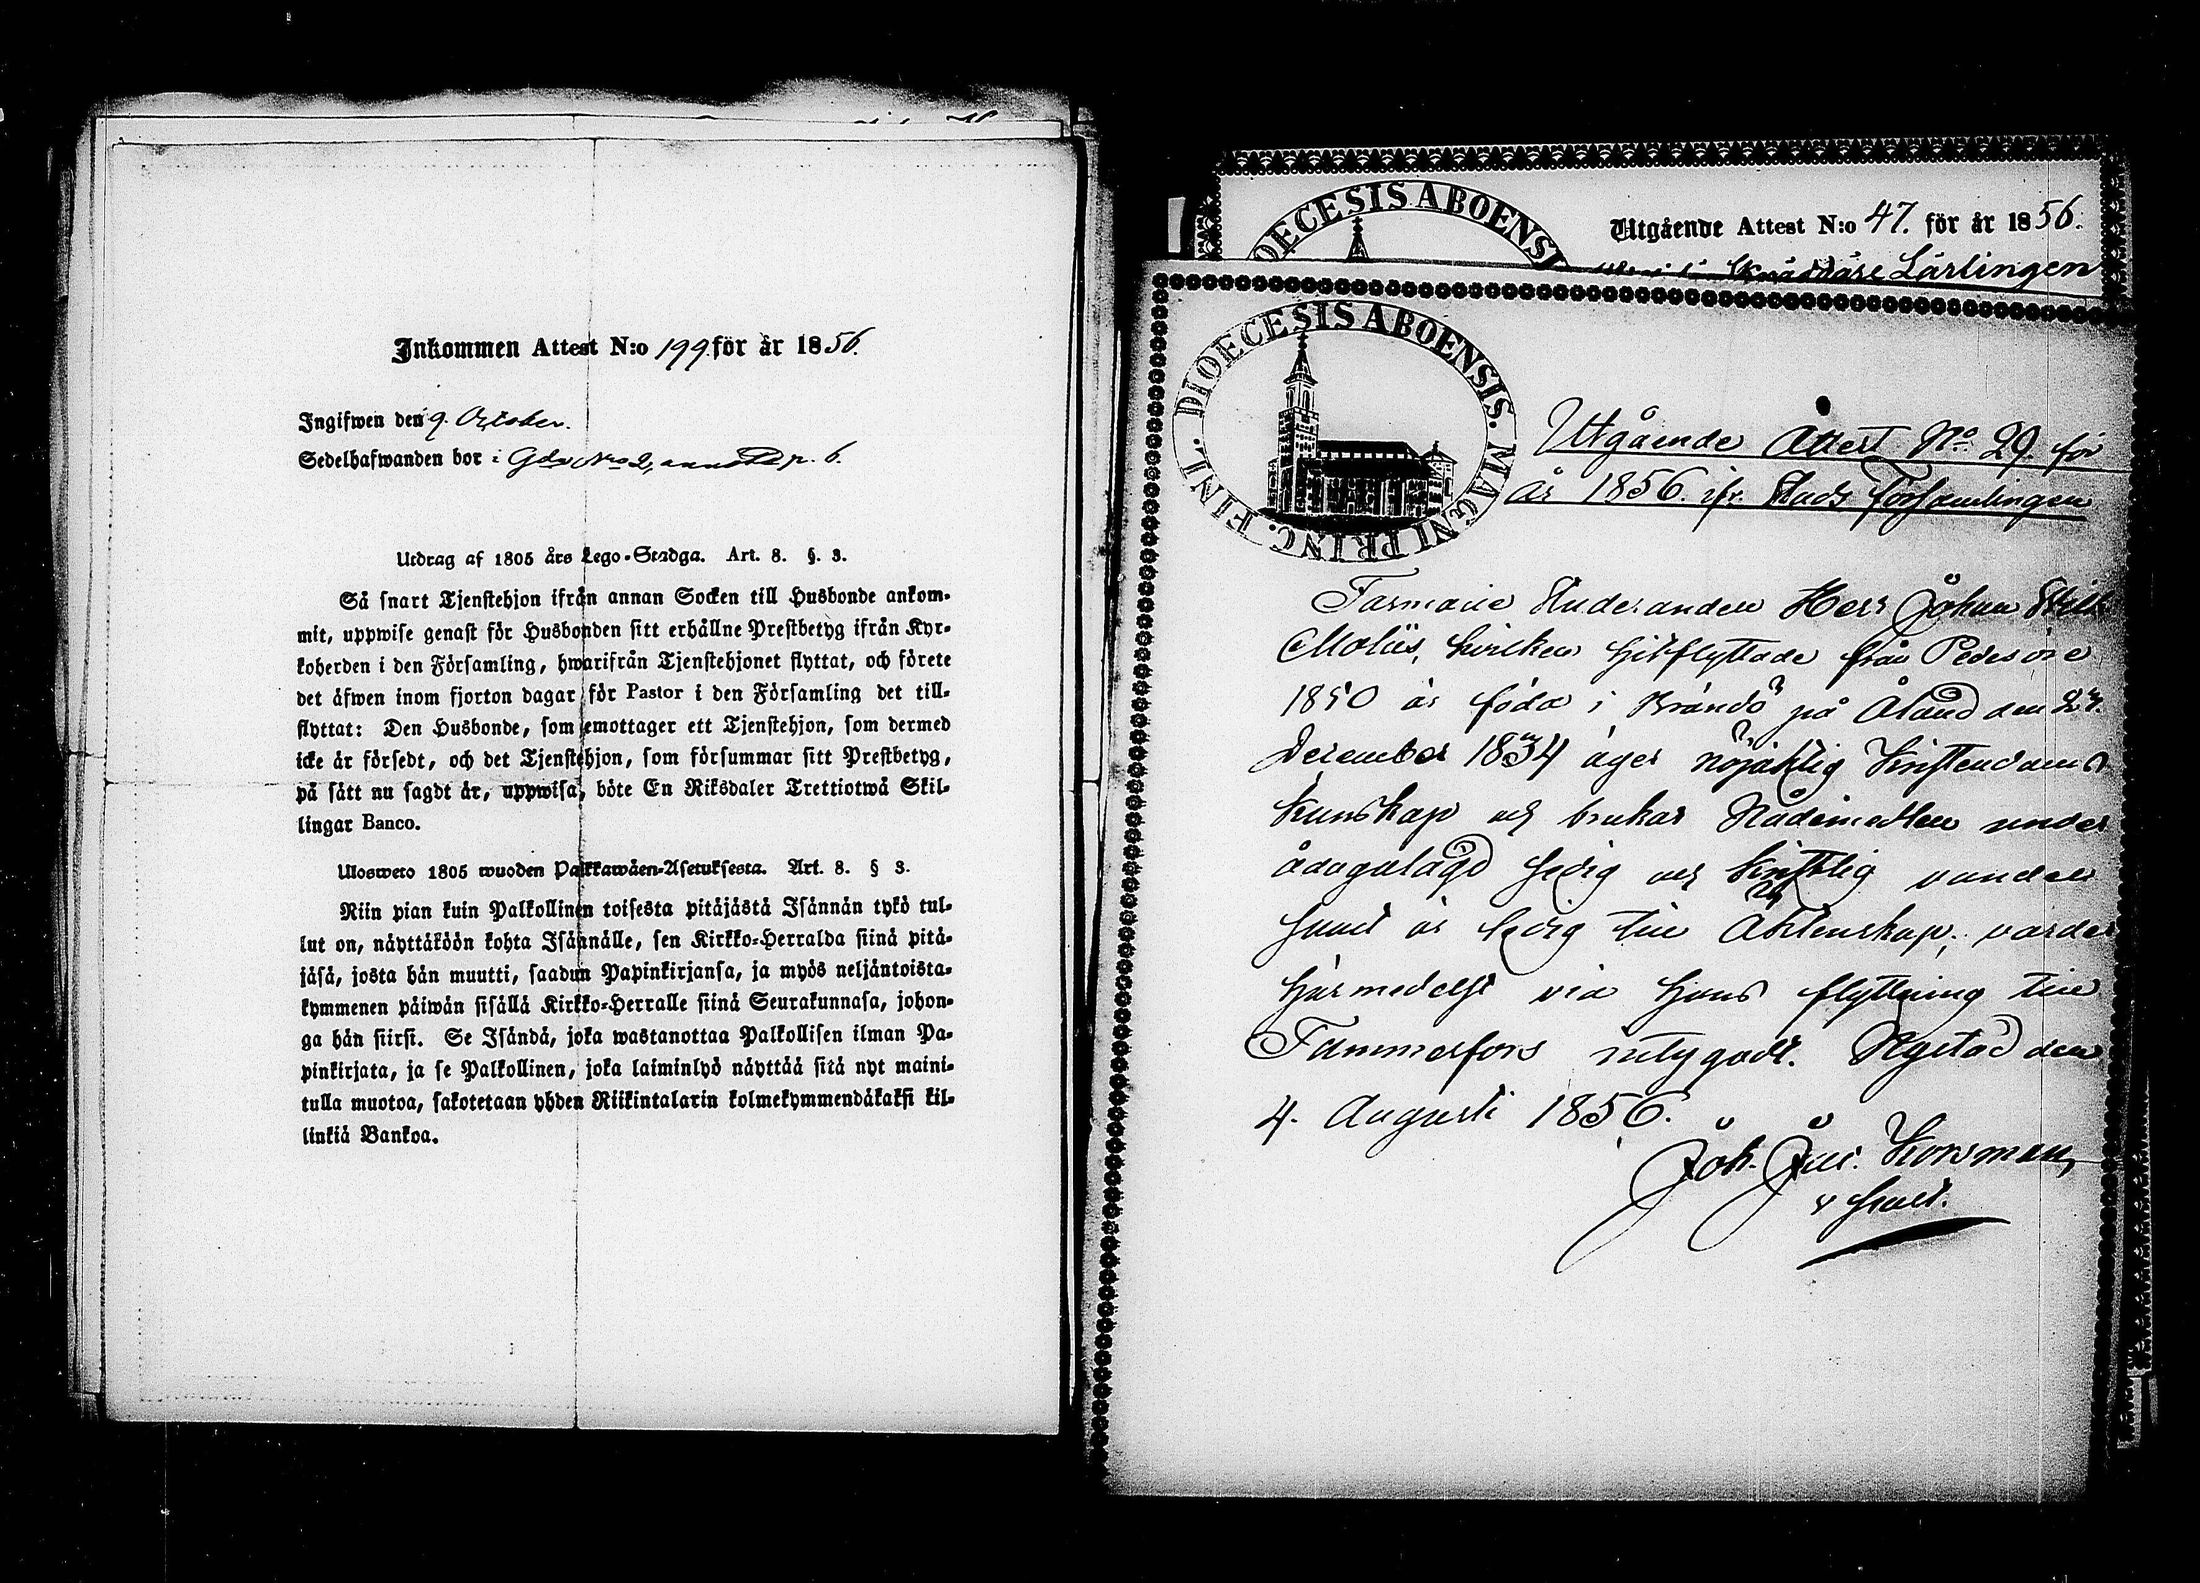 Inkommen Attest N:o 199. för år 1856.
Ingifwen den 9. October.
Sedelhafwanden bor i Gdn No 2, annoterad p. 6.
Utdrag af 1805 års Lego-Stadga. Art. 8. §. 3.
Så snart Tjenstehjon ifrån annan Socken till Husbonde ankom-
mit, uppwise genast för Husbonden sitt erhållne Prestbetyg ifrån Kyr-
koherden i den Församling, hwarifrån Tjenstehjonet flyttat, och förete
det äfwen inom fjorton dagar för Pastor i den Församling det till-
flyttat: Den Husbonde, som emottager ett Tjenstehjon, som dermed
icke är försedt, och det Tjenstehjon, som försummar sitt Prestbetyg,
på sätt nu sagdt är, uppwisa, böte En Riksdaler Trettiotwå Skil-
lingar Banco.
Ulosweto 1805 wuoden Palkkawäen-Asetuksesta. Art. 8. § 3.
Niin pian kuin Palkollinen toisesta pitäjästä Isännän tykö tul-
lut on, näyttäköön kohta Isännälle, sen Kirkko-Herralda siinä pitä-
jäsä, josta hän muutti, saadun Papinkirjansa, ja myös neljäntoista-
kymmenen päiwän sisällä Kirkko-Herralle siinä Seurakunnasa, johon-
ga hän siirsi. Se Isändä, joka wastanottaa Palkollisen ilman Pa-
pinkirjata, ja se Palkollinen, joka laiminlyö näyttää sitä nyt maini-
tulla muotoa, sakotetaan yhden Riikintalarin kolmekymmendäkaksi kil-
linkiä Bankoa.
DIOECESIS ABOENSI
Utgående Attest N:o 47. för år 1856.
Lärlingen
DIOECESIS ABOENSIS. MAGNI PRINC. FINL.
Utgående Attest No. 29. för
år 1856. ifr. Stads Församlingen
Farmacie Studeranden Herr Johan Wilh
Moliis, hvilken hitflyttade från Pedersöre
1850 är född i Brändö på Åland den 27.
December 1834 äger nöjaktig Kristendoms
kunskap och brukar Nådemedlen under
ådagalagd sedig och kristlig vandel
samt är ledig till Äktenskap; varder
härmedelst vid hans flyttning till
Tammerfors intygadt. Nystad den
4. Augusti 1856.
Joh. Jul. Konsman,